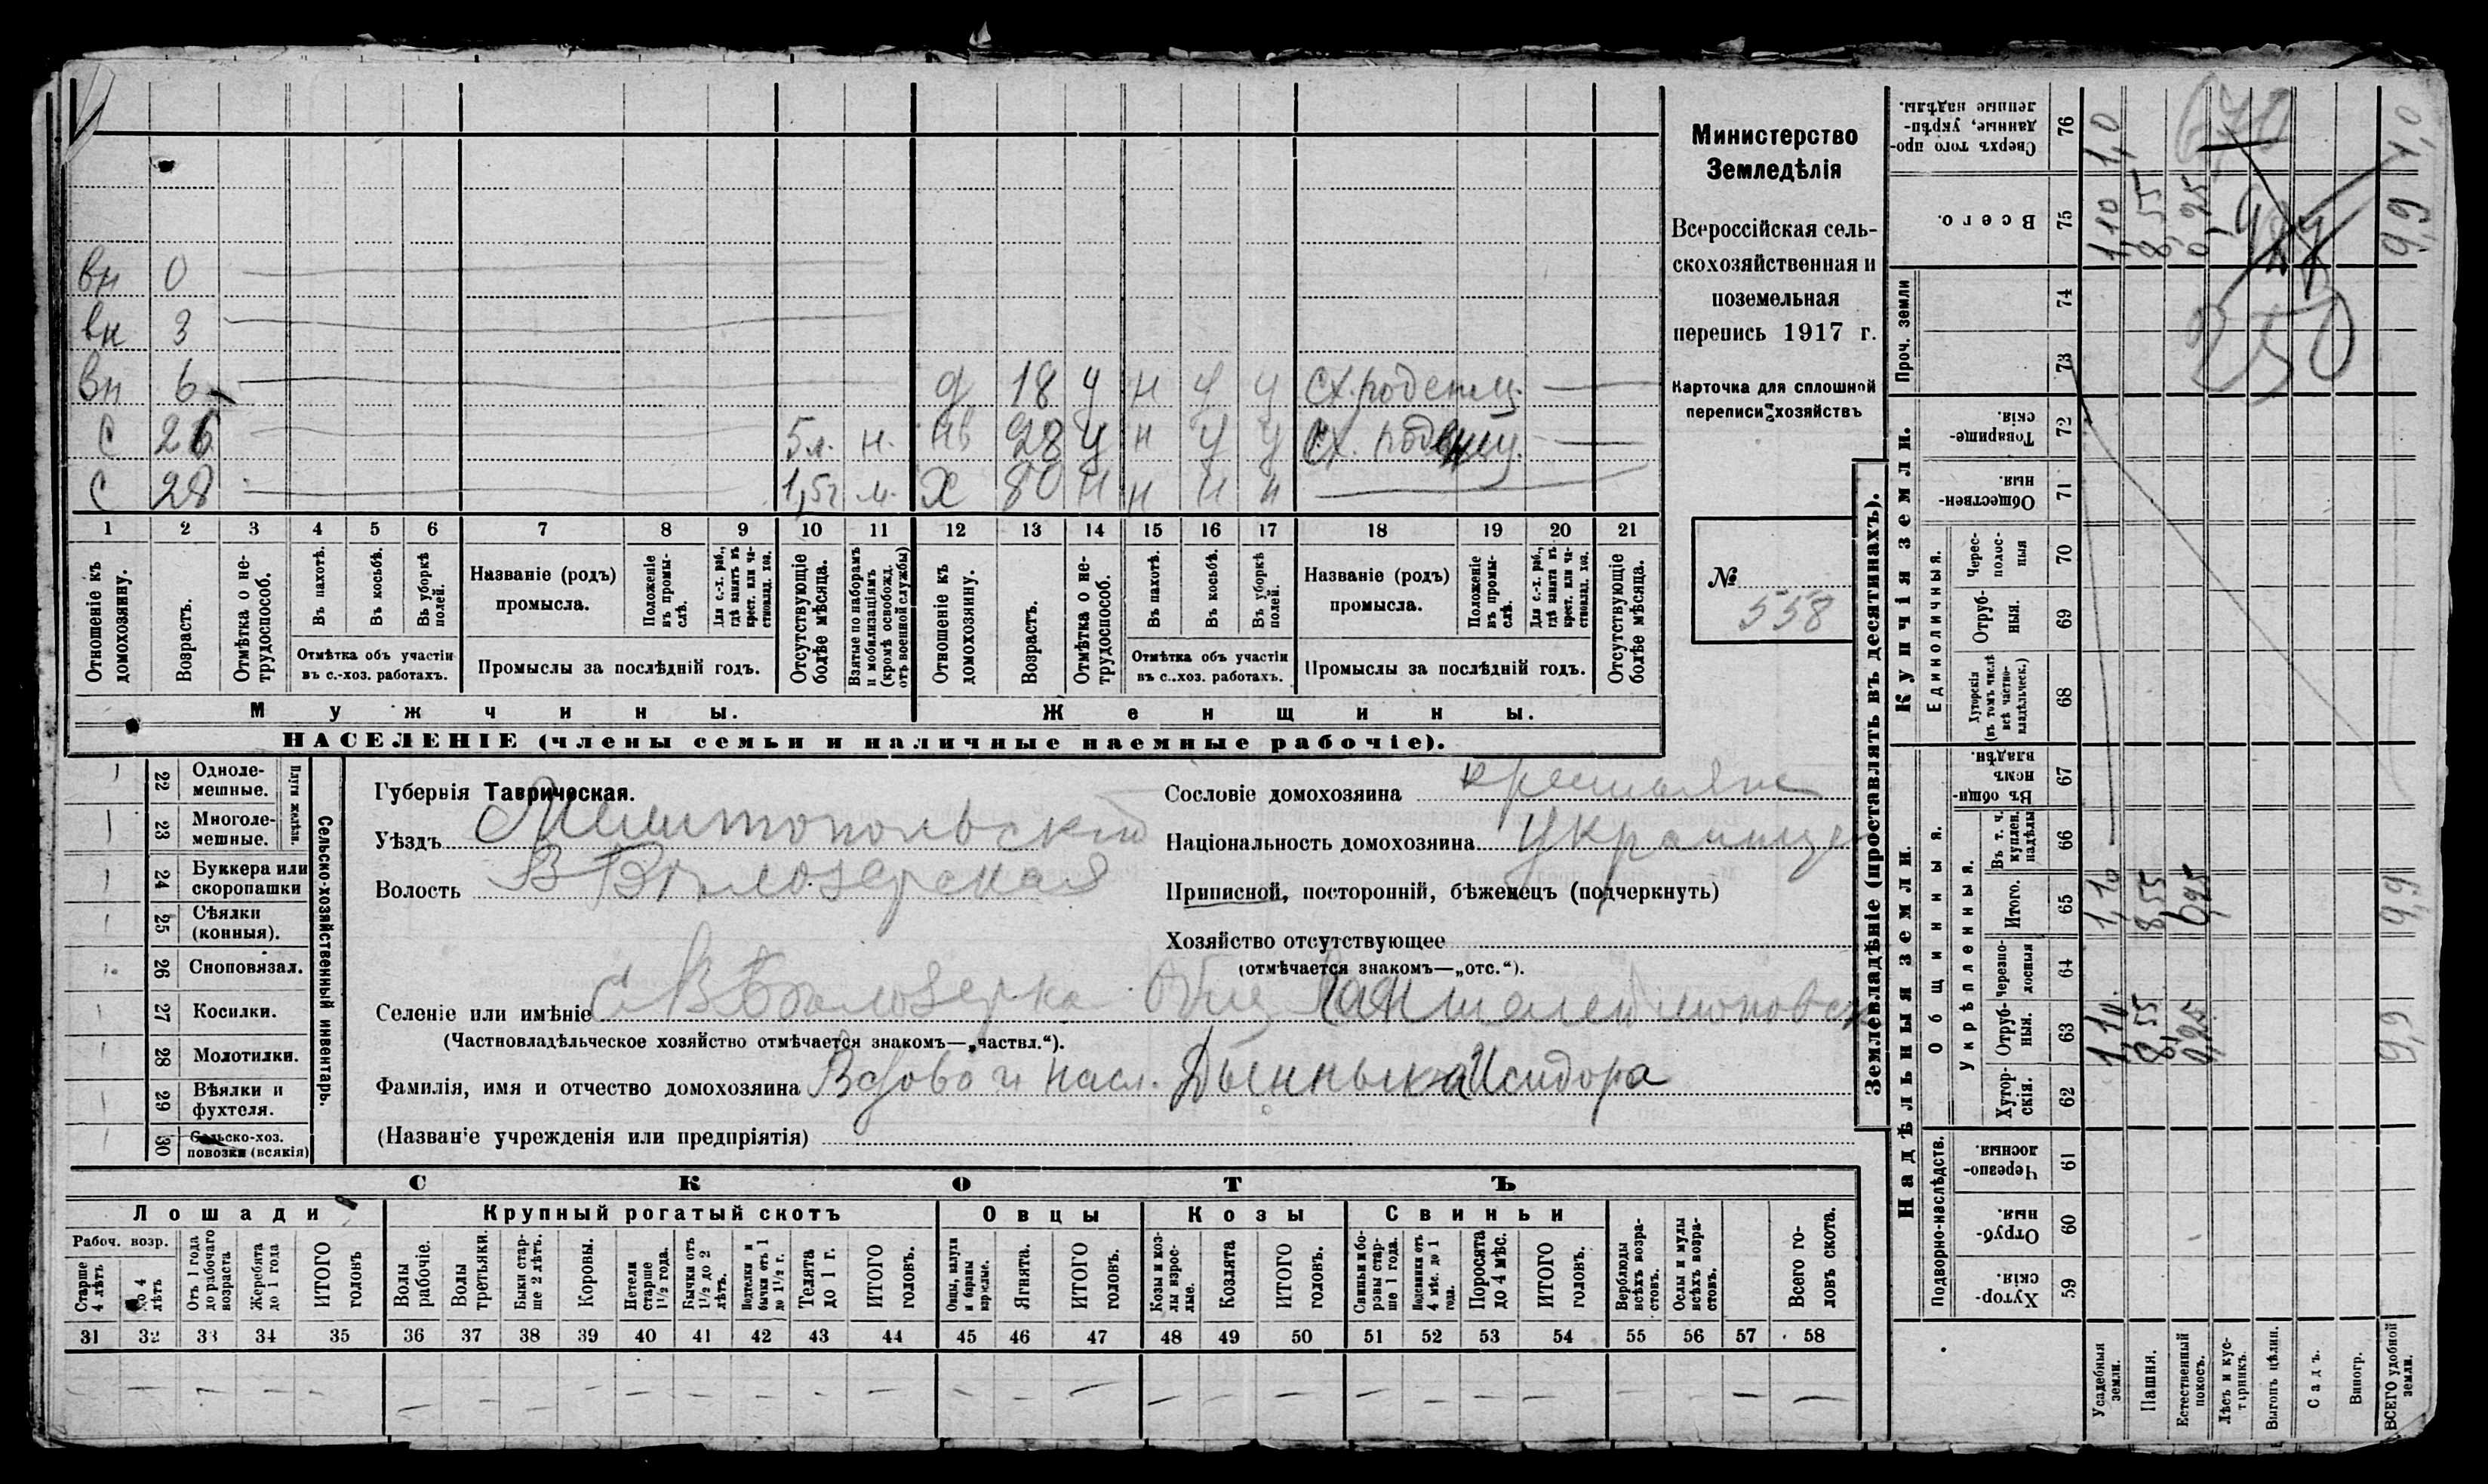 вн 0
вн 3
вн 6 д 18 у н у у
с 26 5л. н. нв 28 у н у у
с 28 1,5г м. х 80 н н н н
1 2 3 4 5 6 7 8 9 10 11 12 13 14 15 16 17 18 19 20 21
Отношеніе къ домохозяину.
Возрастъ.
Отмѣтка о нетрудоспособ.
Въ пахотѣ.
Въ косьбѣ.
Въ уборкѣ полей.
Отмѣтка объ участіи
въ с.-хоз. работахъ.
Названіе (родъ)
промысла.
Положеніе въ промыслѣ.
Для с.-х. раб., гдѣ занятъ въ крест. или частновлад. хоз.
Промыслы за послѣдній годъ.
Отсутствующіе болѣе мѣсяца.
Взятые по наборамъ и мобилизаціямъ (кромѣ освобожд. отъ военной службы)
Отношеніе къ домохозяину.
Возрастъ.
Отмѣтка о нетрудоспособ.
Въ пахотѣ.
Въ косьбѣ.
Въ уборкѣ полей.
Отмѣтка объ участіи
въ с..хоз. работахъ.
Названіе (родъ)
промысла.
Положеніе въ промыслѣ.
Для с.-х. раб., гдѣ занята въ крест. или частновлад. хоз.
Промыслы за послѣдній годъ.
Отсутствующіе болѣе мѣсяца.
Мужчины.
Женщины.
НАСЕЛЕНІЕ (члены семьи и наличные наемные рабочіе).
Министерство
Земледѣлія
Всероссійская сель-
скохозяйственная и
поземельная
перепись 1917 г.
Карточка для сплошной
переписи хозяйствъ
№
558
22 Одноле-
мешные.
23 Многоле-
мешные.
Плуги желѣзн.
24 Буккера или
скоропашки
25 Сѣялки
(конныя).
26 Сноповязал.
27 Косилки.
28 Молотилки.
29 Вѣялки и
фухтеля.
30 Сельско-хоз.
повозки (всякія)
Сельско-хозяйственный инвентарь.
Губернія Таврическая.
Уѣздъ Мелитопольскій
Волость В Бѣлозерская
Сословіе домохозяина крестьяне
Національность домохозяина
Приписной, посторонній, бѣженецъ (подчеркнуть)
Хозяйство отсутствующее
(отмѣчается знакомъ—„отс.“).
Селеніе или имѣніе с В Бѣлозерка Общ
(Частновладѣльческое хозяйство отмѣчается знакомъ—„частвл.“).
Фамилія, имя и отчество домохозяина Вдова и насл. Исидора
(Названіе учрежденія или предпріятія)
СКОТЪ
Лошади
Крупный рогатый скотъ
Овцы
Козы
Свиньи
Рабоч. возр.
Старше 4 лѣтъ
До 4 лѣтъ
Отъ 1 года до рабочаго возраста
Жеребята до 1 года
ИТОГО головъ
Волы рабочіе.
Волы третьяки.
Быки старше 2 лѣтъ.
Коровы.
Нетели старше 1½ года.
Бычки отъ 1½ до 2 лѣтъ.
Подтелки и бычки отъ 1 до 1½ г.
Телята до 1 г.
ИТОГО головъ.
Овцы, валухи и бараны взрослые.
Ягнята.
ИТОГО головъ.
Козы и козлы взрослые.
Козлята
ИТОГО головъ.
Свиньи и боровы старше 1 года.
Подсвинки отъ 4 мѣс. до 1 года.
Поросята до 4 мѣс.
ИТОГО головъ.
Верблюды всѣхъ возрастовъ.
Ослы и мулы всѣхъ возрастовъ.
Всего головъ скота.
31 32 33 34 35 36 37 38 39 40 41 42 43 44 45 46 47 48 49 50 51 52 53 54 55 56 57 58
Землевладѣніе (проставлять въ десятинахъ).
Надѣльныя земли.
Купчія земли.
Проч. земли
Подворно-наслѣдств.
Общинныя.
Укрѣпленныя.
Единоличныя.
Сверхъ того проданные, укрѣпленные надѣлы. 76 1,0 1,0
Всего. 75 1,10 8,55 0,25 9,9
74
73
Товарищескія. 72
Общественныя. 71
Чресполосныя 70
Отрубныя. 69
Хуторскія (въ томъ числѣ всѣ частновладѣльческ.) 68
Въ общинномъ владѣн. 67
Въ т. ч. куплен. надѣлы 66
Итого. 65 1,10 8,55 0,25 9,9
Черезполосныя 64
Отрубныя. 63 1,10. 8,55 0,25. 9,9
Хуторскія. 62
Черезполосныя. 61
Отрубныя. 60
Хуторскія. 59
Усадебныя земли.
Пашня.
Естественный покосъ.
Лѣсъ и кустарникъ.
Выгонъ цѣлин.
Садъ.
Виногр.
ВСЕГО удобной земли.
250